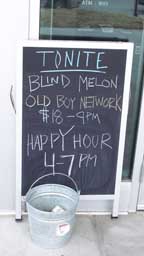 TONITE
BLIND MELON
OLD BOY NETWORK
$18-9PM
HAPPY HOUR
4-7PM